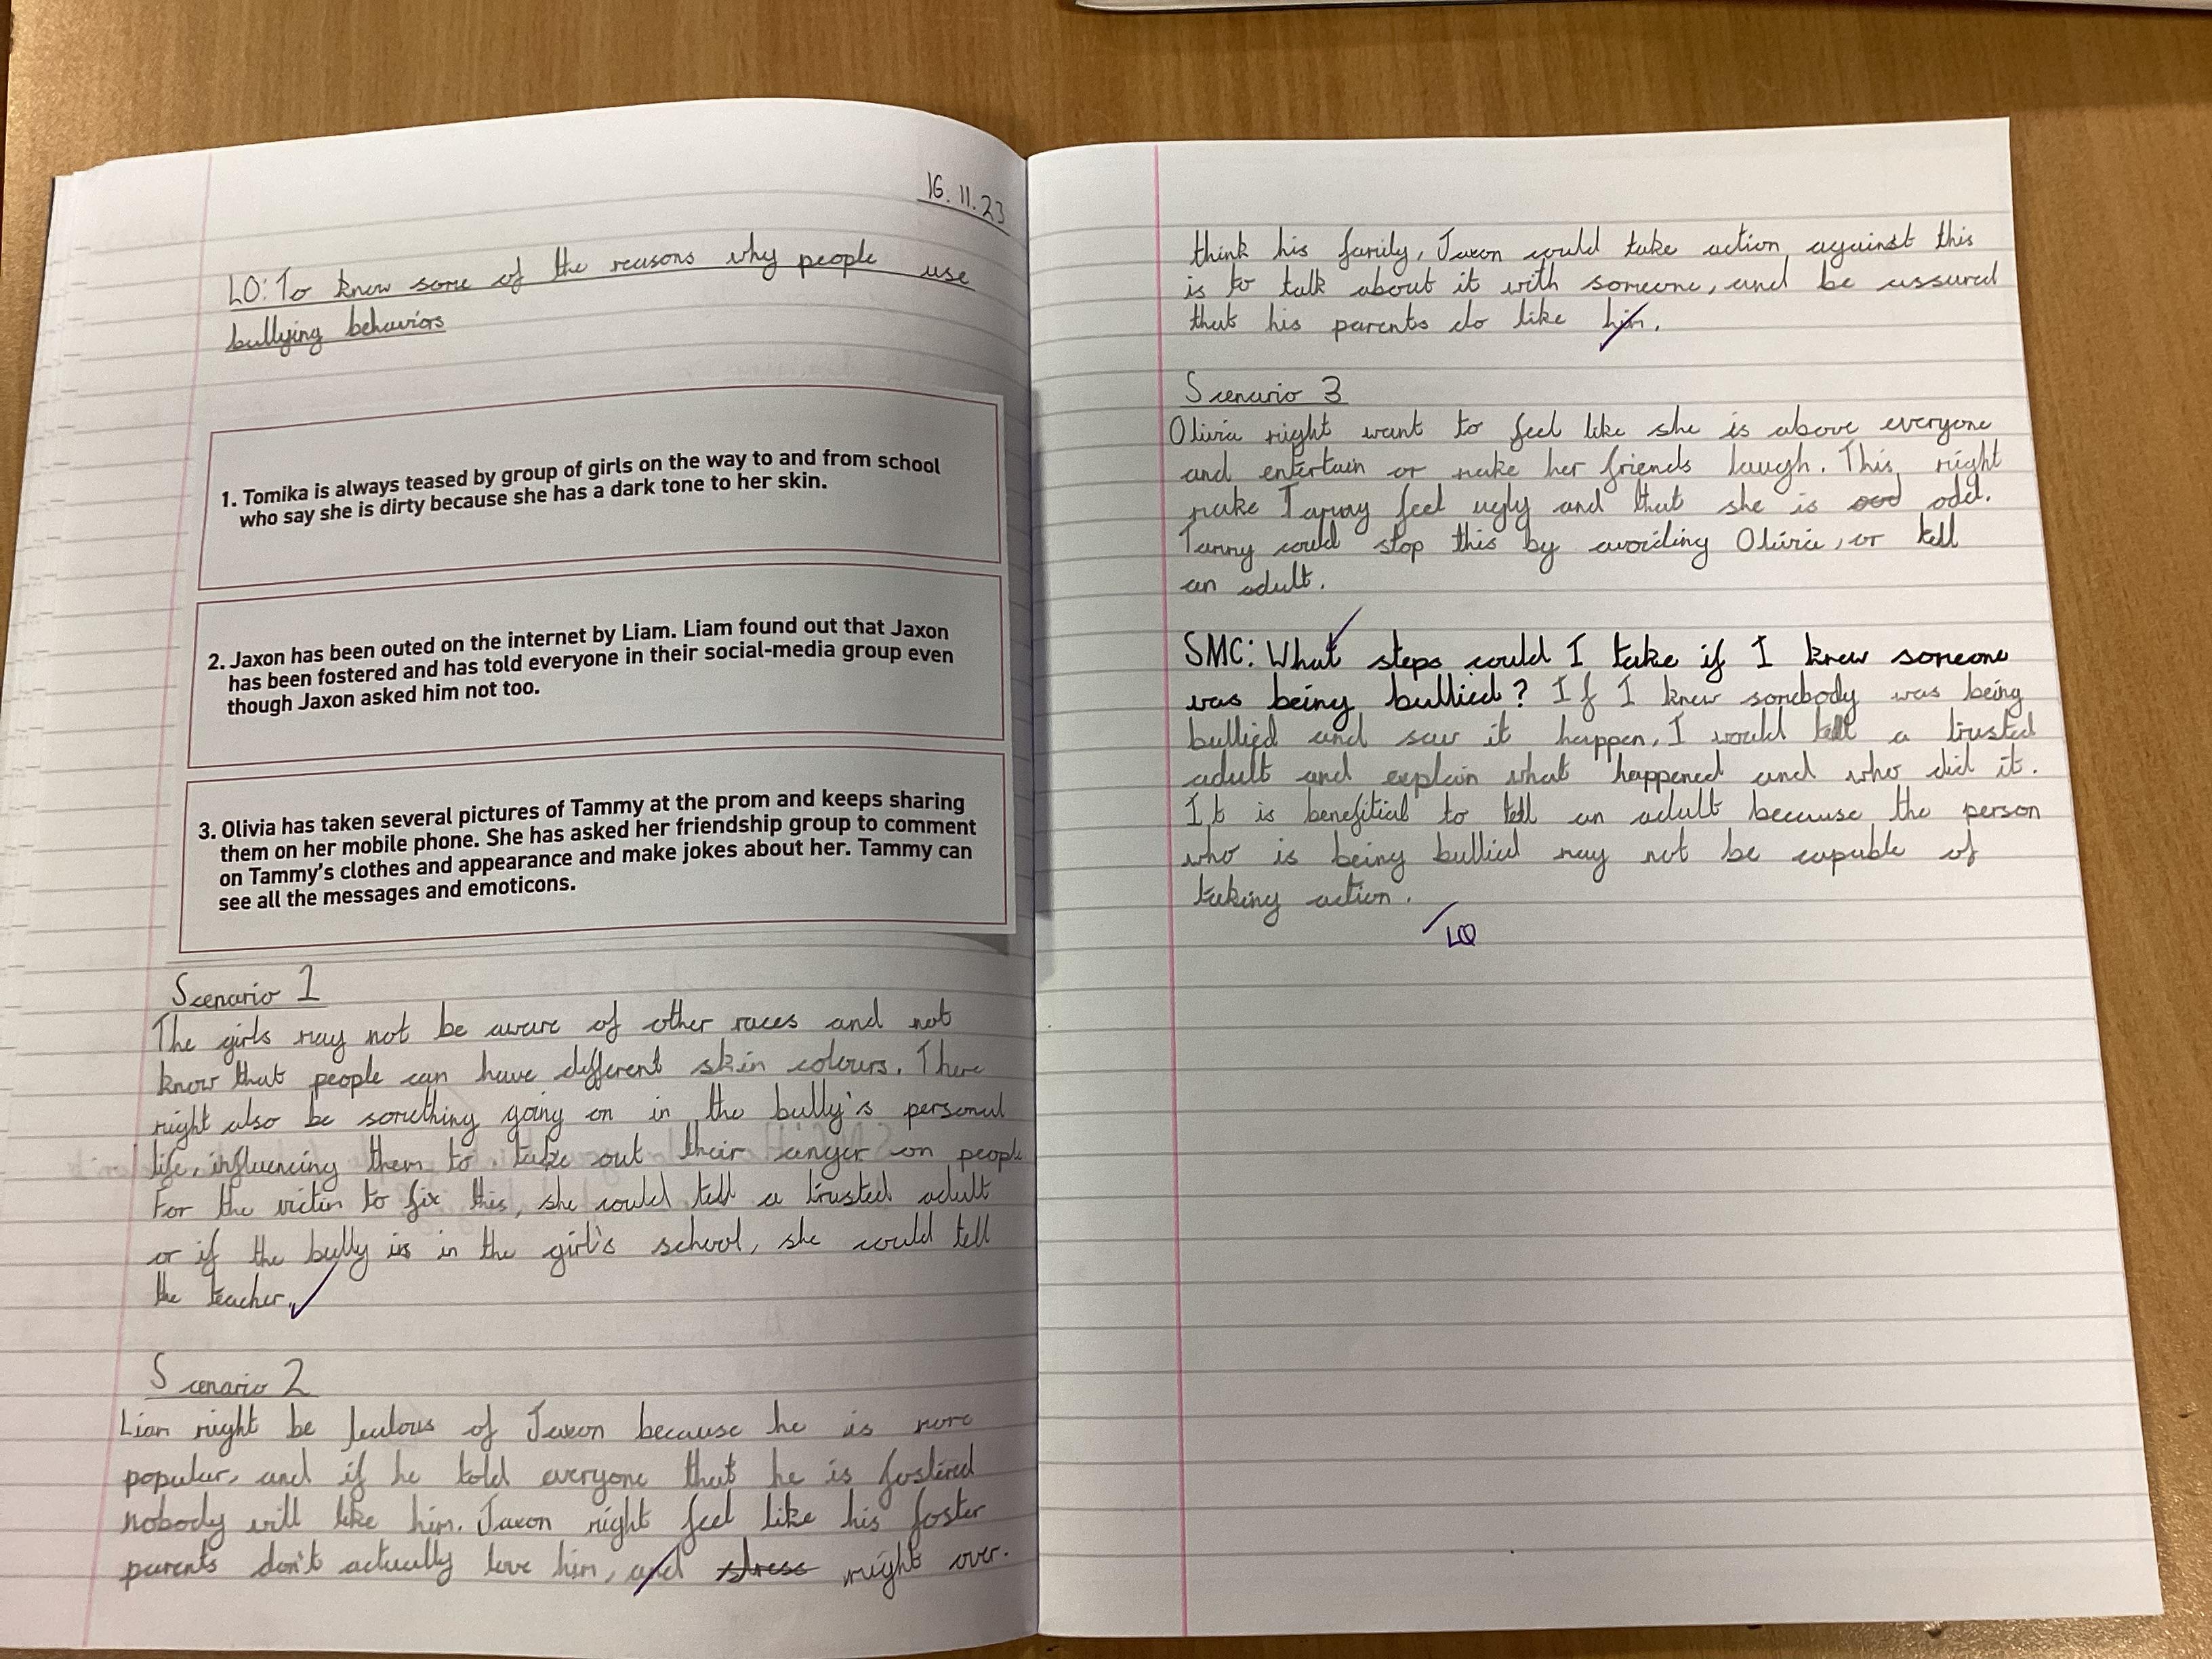 16.11.23
LO: To know some of the reasons why people use
bullying behaviors
1. Tomika is always teased by group of girls on the way to and from school
who say she is dirty because she has a dark tone to her skin.
2. Jaxon has been outed on the internet by Liam. Liam found out that Jaxon
has been fostered and has told everyone in their social-media group even
though Jaxon asked him not too.
3. Olivia has taken several pictures of Tammy at the prom and keeps sharing
them on her mobile phone. She has asked her friendship group to comment
on Tammy's clothes and appearance and make jokes about her. Tammy can
see all the messages and emoticons.
Scenario 1
The girls may not be aware of other races and not
know that people can have different skin colours. There
might also be something going on in the bully's personal
life, influencing them to take out their anger on people
For the victim to fix this, she could tell a trusted adult
or if the bully is in the girl's school, she could tell
the teacher.
Scenario 2
Liam might be jealous of Jaxon because he is more
popular, and if he told everyone that he is fostered
nobody will like him. Jaxon might feel like his foster
parents don't actually love him, and stress might over-
think his family, Jaxon could take action against this
is to talk about it with someone, and be assured
that his parents do like him.
Scenario 3
Olivia might want to feel like she is above everyone
and entertain or make her friends laugh. This might
make Tammy feel ugly and that she is odd.
Tammy could stop this by avoiding Olivia, or tell
an adult.
SMC: What steps could I take if I knew someone
was being bullied? If I knew somebody was being
bullied and saw it happen, I would tell a trusted
adult and explain what happened and who did it.
It is benefitial to tell an adult because the person
who is being bullied may not be capable of
taking action.